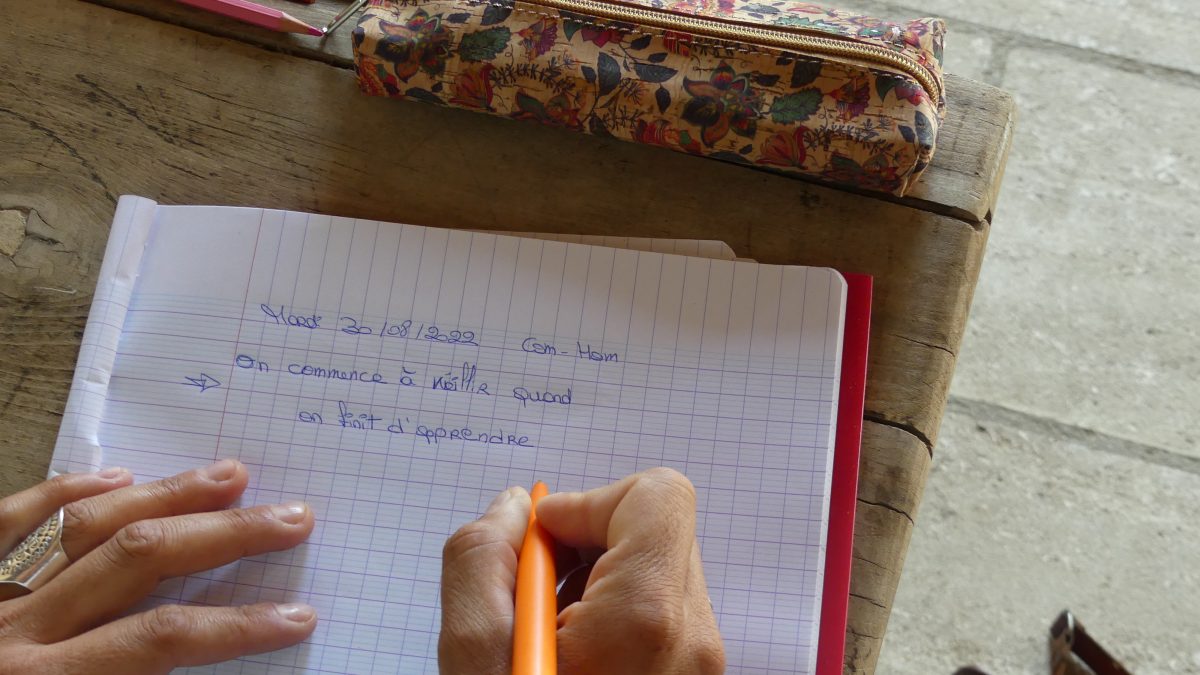 Mardi 30/08/2022 Com-Hom
on commence à vieillir quand
on finit d'apprendre